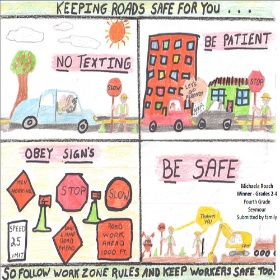 KEEPING ROADS SAFE FOR YOU . . .
NO TEXTING
SLOW
BE PATIENT
STOP
OBEY SIGNS
MEN
WORKING
STOP
SLOW
SPEED
25
LIMIT
1 LANE
ROAD
AHEAD
ROAD
WORK
AHEAD
1000 FT
BE SAFE
THANK
YOU
Michaela Roach
Winner - Grades 2-4
Fourth Grade
Seymour
Submitted by family
SO FOLLOW WORK ZONE RULES AND KEEP WORKERS SAFE TOO